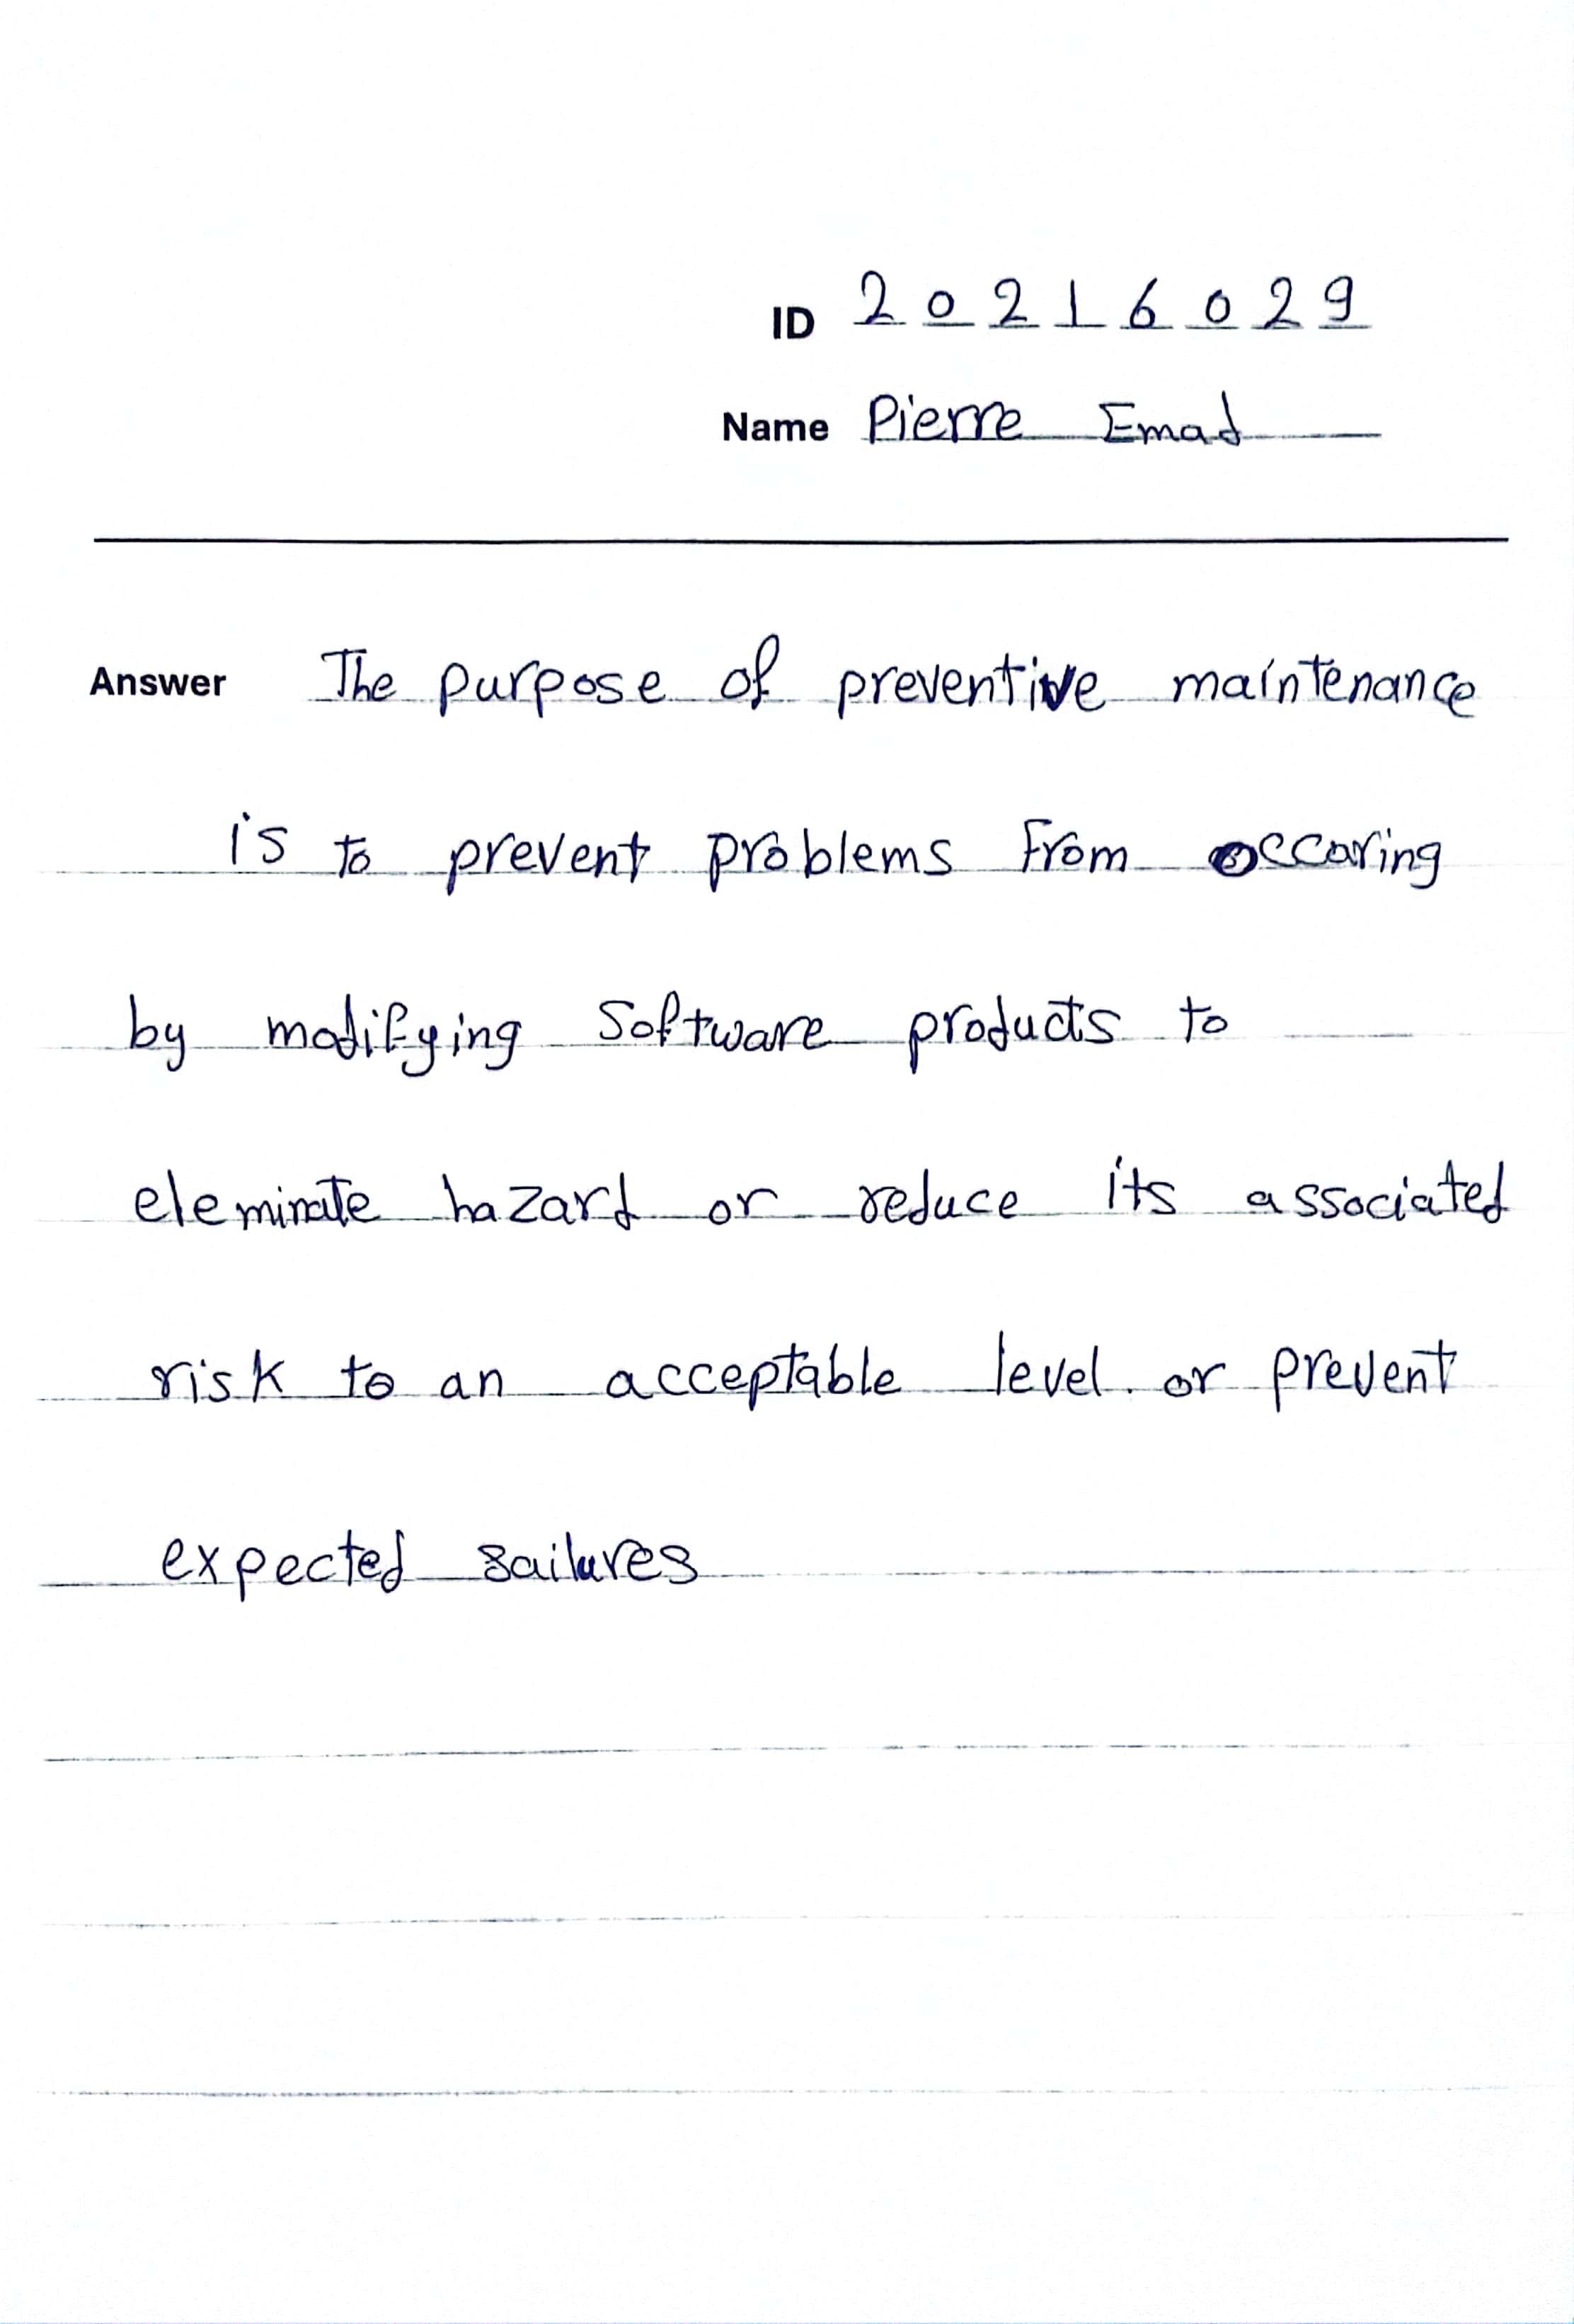 ID 20216029
Name Pierre Emad
Answer The purpose of preventive maintenance
is to prevent problems from occaring
by modifying software products to
eleminate hazard or reduce its associated
risk to an acceptable level or prevent
expected sailures